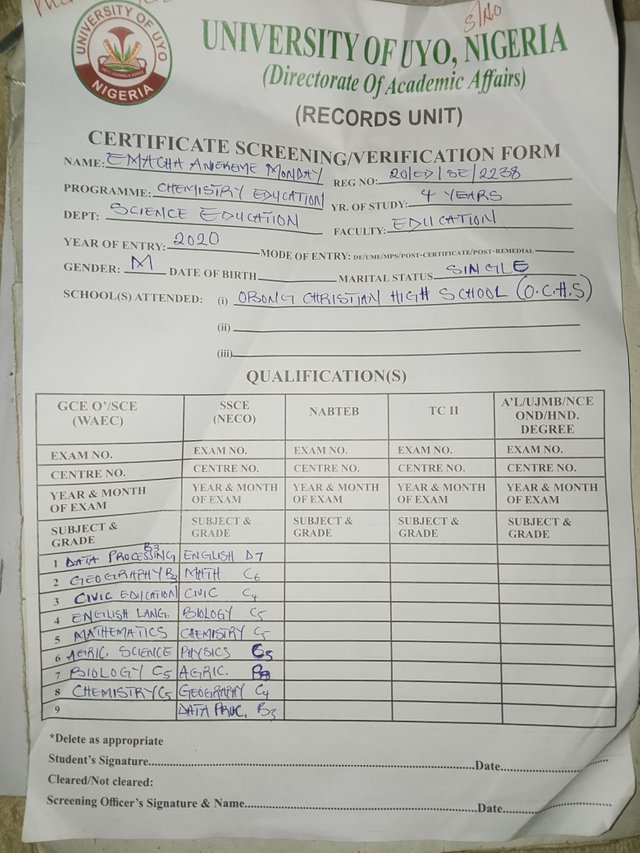 S/NO
UNIVERSITY OF UYO
NIGERIA
UNIVERSITY OF UYO, NIGERIA
(Directorate Of Academic Affairs)
(RECORDS UNIT)
CERTIFICATE SCREENING/VERIFICATION FORM
NAME: EMACHA ANIEKEME MONDAY REG NO: 20/ED/SE/2238
PROGRAMME: CHEMISTRY EDUCATION YR. OF STUDY: 4 YEARS
DEPT: SCIENCE EDUCATION FACULTY: EDUCATION
YEAR OF ENTRY: 2020 MODE OF ENTRY: DE/UME/MPS/POST-CERTIFICATE/POST-REMEDIAL
GENDER: M DATE OF BIRTH MARITAL STATUS SINGLE
SCHOOL(S) ATTENDED: (i) OBONG CHRISTIAN HIGH SCHOOL (O.C.H.S)
(ii)
(iii)
QUALIFICATION(S)
GCE O'/SCE (WAEC) SSCE (NECO) NABTEB TC II A'L/UJMB/NCE OND/HND. DEGREE
EXAM NO. EXAM NO. EXAM NO. EXAM NO. EXAM NO.
CENTRE NO. CENTRE NO. CENTRE NO. CENTRE NO. CENTRE NO.
YEAR & MONTH OF EXAM YEAR & MONTH OF EXAM YEAR & MONTH OF EXAM YEAR & MONTH OF EXAM YEAR & MONTH OF EXAM
SUBJECT & GRADE SUBJECT & GRADE SUBJECT & GRADE SUBJECT & GRADE SUBJECT & GRADE
1 DATA PROCESSING B3 ENGLISH D7
2 GEOGRAPHY B3 MATH C6
3 CIVIC EDUCATION CIVIC C4
4 ENGLISH LANG. BIOLOGY C5
5 MATHEMATICS CHEMISTRY C5
6 AGRIC. SCIENCE PHYSICS C5
7 BIOLOGY C5 AGRIC.
8 CHEMISTRY C5 GEOGRAPHY C4
9 DATA PROC. B3
*Delete as appropriate
Student's Signature Date
Cleared/Not cleared:
Screening Officer's Signature & Name Date